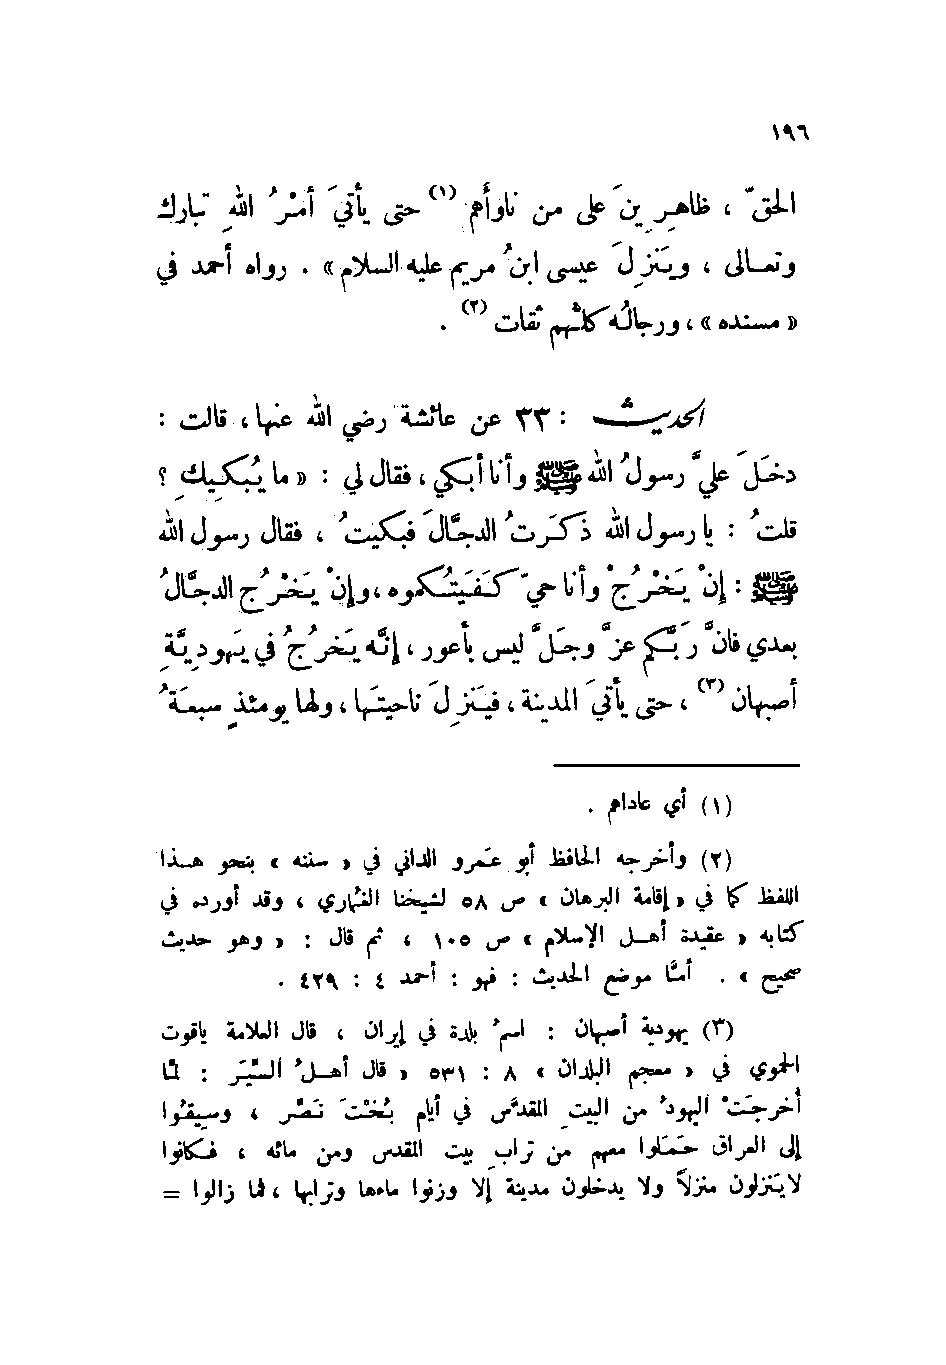 ١٩٦
الحقّ ، ظاهِرِينَ على من ناوَأَهم (١) حتى يأتيَ أمْرُ اللهِ تبارك
وتعـالى ، ويَنزِلَ عيسى ابنُ مريم عليه السلام » . رواه أحمد في
« مسنده » ، ورجالُه كلُّهم ثقات (٢) .
الحديث ٣٣ : عن عائشة رضي الله عنها ، قالت :
دخَلَ عليَّ رسولُ الله ﷺ وأنا أبكي ، فقال لي : « ما يُبكِيكِ ؟
قلتُ : يا رسول الله ذكَرتُ الدجَّالَ فبكيتُ ، فقال رسول الله
ﷺ : إنْ يَخْرُجْ وأنا حيّ كَفَيتُكُموه ، وإنْ يَخْرُج الدجَّالُ
بعدي فانَّ رَبَّكم عزَّ وجَلَّ ليس بأعور ، إنَّه يَخرُجُ في يَهودِيَّةِ
أصبهان (٣) ، حتى يأتيَ المدينة ، فيَنزِلَ ناحيتَها ، ولها يومئذٍ سبعَةُ
(١) أي عاداهم .
(٢) وأخرجه الحافظ أبو عَمرو الداني في « سننه » بنحو هـذا
اللفظ كما في « إقامة البرهان » ص ٥٨ لشيخنا الغُماري ، وقد أورده في
كتابه « عقيدة أهـل الإسلام » ص ١٠٥ ، ثم قال : « وهو حديث
صحيح » . أمَّا موضع الحديث : فهو : أحمد ٤ : ٤٢٩ .
(٣) يهودية أصبهان : اسمُ بلدة في إيران ، قال العلامة ياقوت
الحموي في « معجم البلدان » ٨ : ٥٣١ « قال أهـلُ السِّيَر : لمَّا
أُخرجَتْ اليهودُ من البيتِ المقدَّس في أيام بُخْتَ نَصَّر ، وسِيقُوا
إلى العراق حَمَلوا معهم من ترابِ بيت المقدس ومن مائه ، فـكانوا
لا يَنزلون منزلاً ولا يدخلون مدينة إلا وزنوا ماءها وترابها ، فما زالوا =